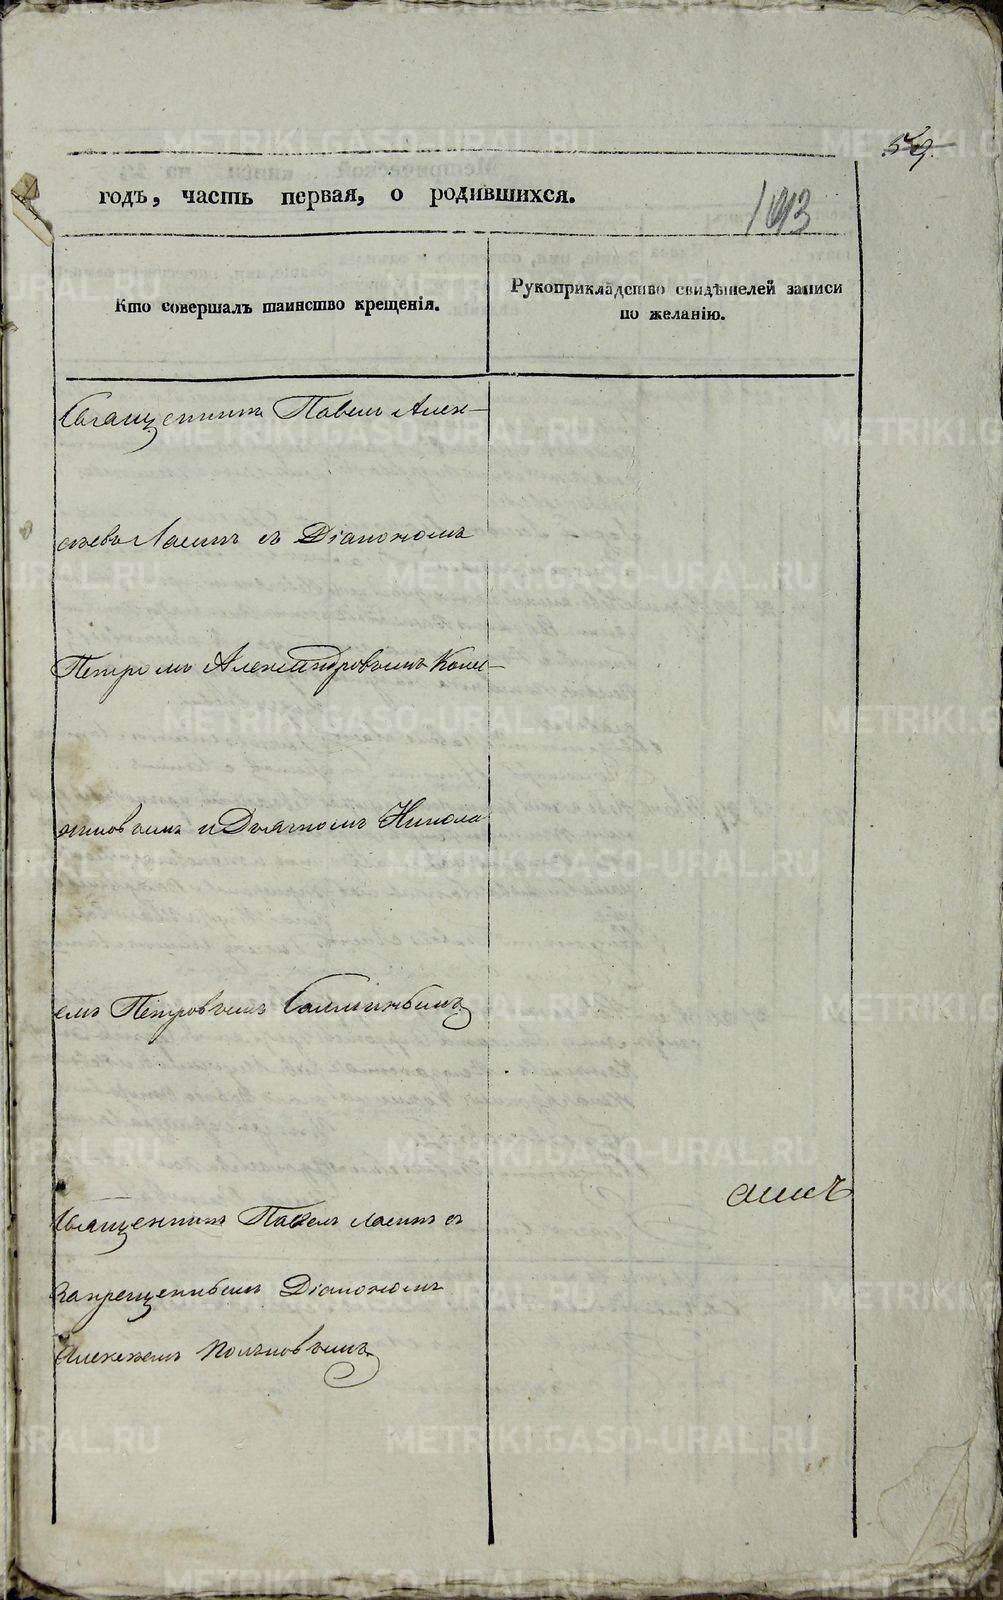 59.
годъ, часть первая, о родившихся.
193
Кто совершалъ таинство крещенія.
Рукоприкладство свидѣтелей записи
по желанію.
Священникъ Павелъ Алек-
съевъ Ласинъ съ Діакономъ
Петромъ Александровымъ Колес-
никовымъ и Дьячкомъ Никола-
емъ Петровымъ
Священникъ Павелъ Ласинъ съ
запрещеннымъ Діакономъ
Алексѣемъ
METRIKI.GASO-URAL.RU